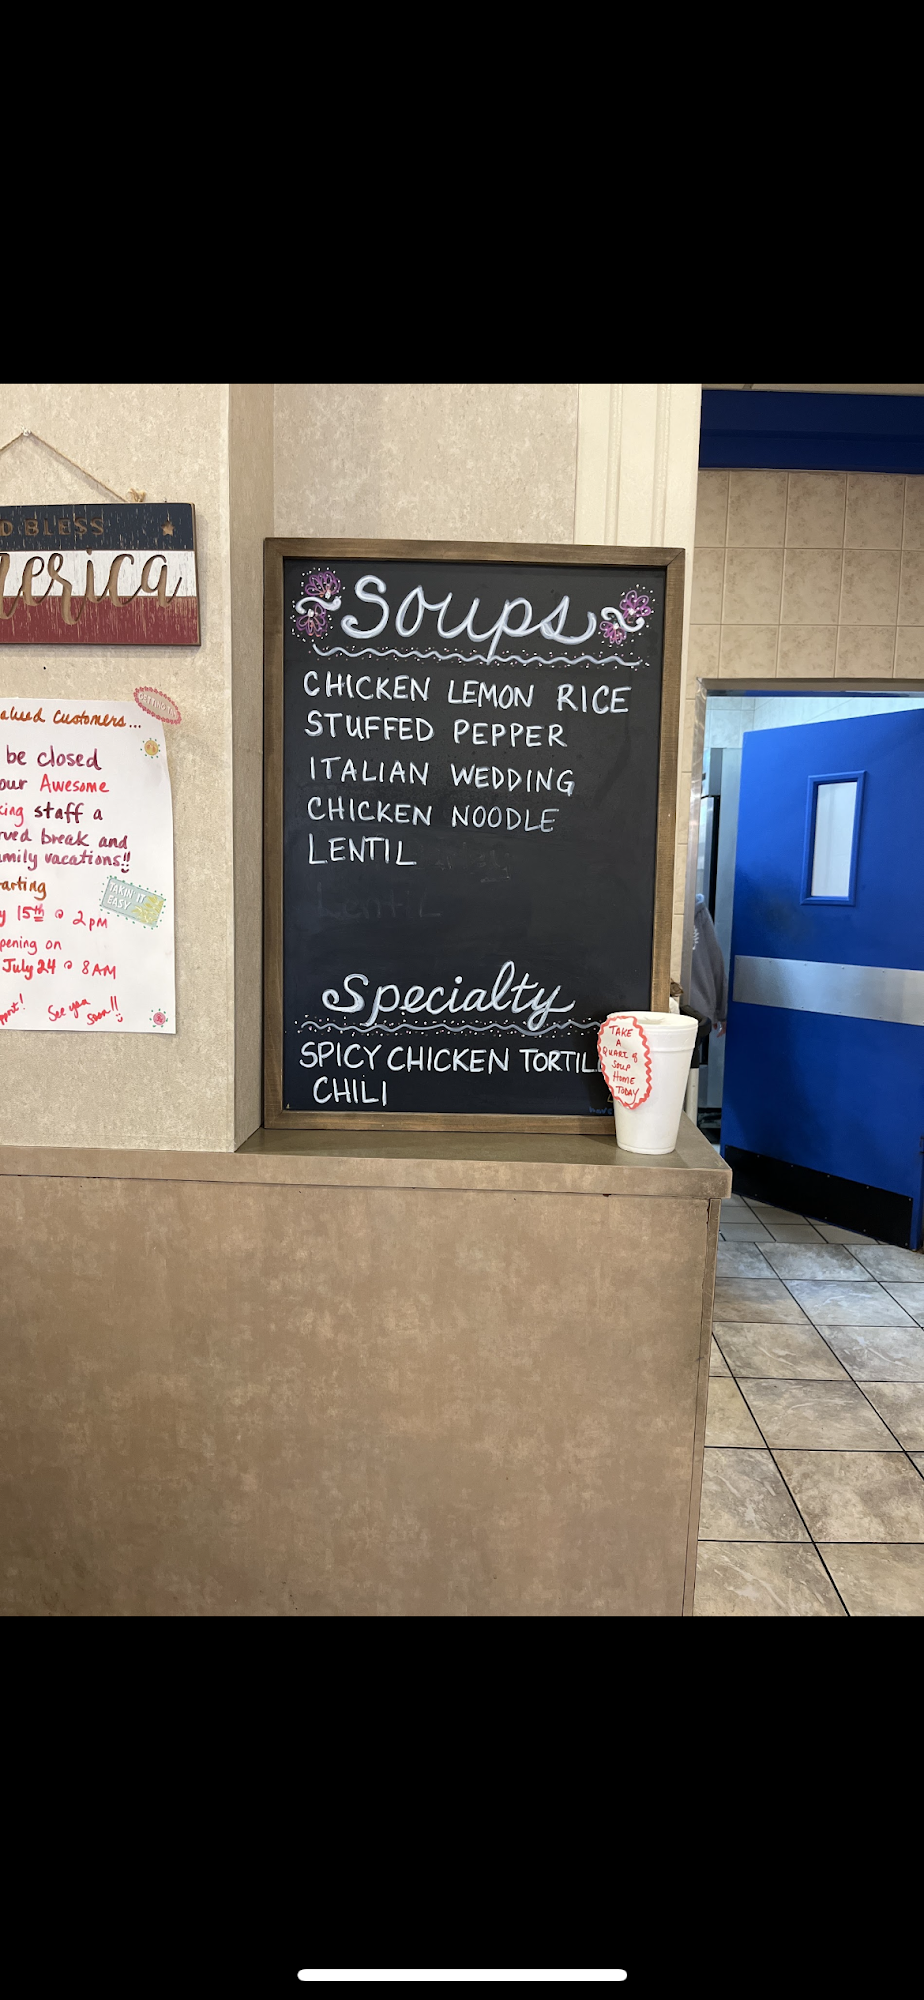 D BLESS
merica
alued Customers...
be closed
our Awesome
king staff a
rved break and
amily vacations!!
arting
y 15th @ 2pm
TAKIN IT
EASY
pening on
July 24 @ 8AM
See you
soon!!
Soups
CHICKEN LEMON RICE
STUFFED PEPPER
ITALIAN WEDDING
CHICKEN NOODLE
LENTIL
Lentil
Specialty
SPICY CHICKEN TORTIL
CHILI
TAKE
A
QUART of
Soup
Home
TODAY